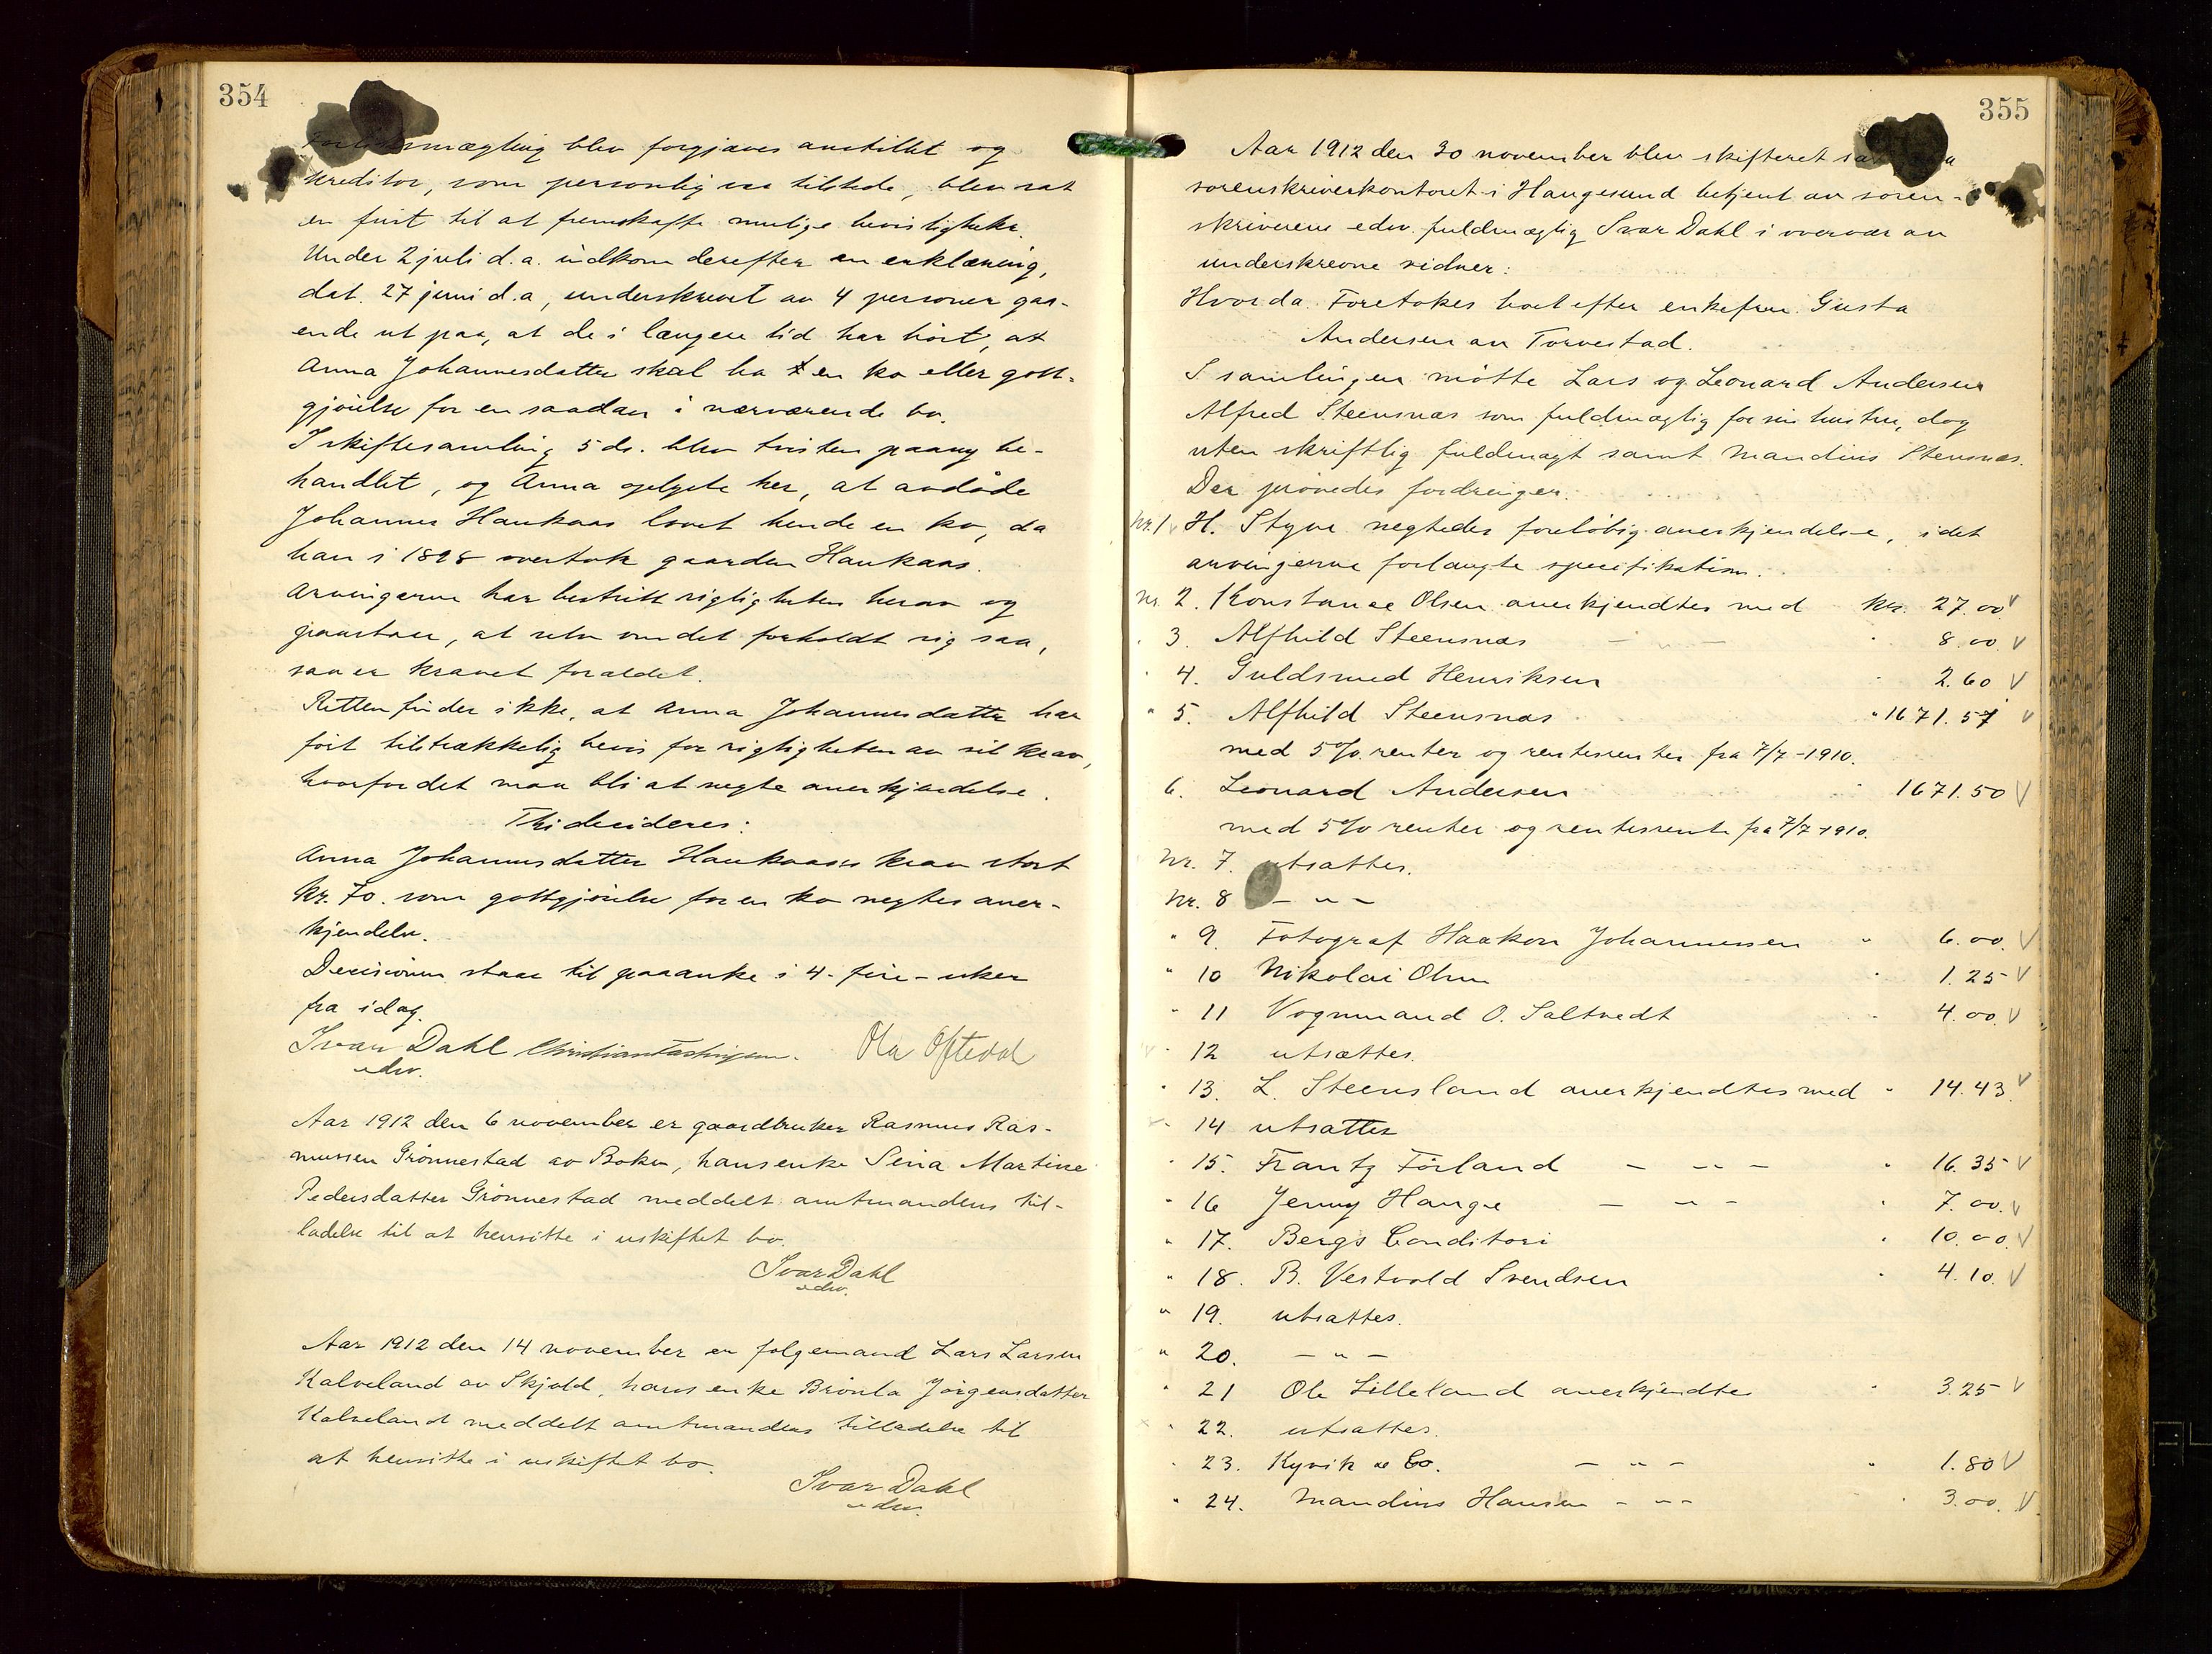 354
Forliksmægling blev forgjæves anstillet og
kreditor, som personlig var tilstede, blev sat
en frist til at fremskaffe mulige bevisligheter.
Under 2 juli d.a. indkom derefter en erklæring,
dat. 27 juni d.a, underskrevet av 4 personer gaa-
ende ut paa, at de i længere tid har hört, at
Anna Johannesdatter skal ha en ko eller godt-
gjörelse for en saadan i nærværende bo.
I skiftesamling 5 ds. blev tvisten paany be-
handlet, og Anna oplyste her, at avdöde
Johannes Haukaas lovet hende en ko, da
han i 1898 overtok gaarden Haukaas.
Arvingerne har bestridt rigtigheten herav og
paastaar, at selv om det forholdt sig saa,
saa er kravet foraldet.
Retten finder ikke, at Anna Johannesdatter har
fört tilstrækkelig bevis for rigtigheten av sit krav,
hvorfor det maa bli at negte anerkjendelse.
Thi decideres:
Anna Johannesdatter Haukaas's krav stort
kr. 70. som godtgjörelse for en ko negtes aner-
kjendelse.
Decisionen staar til paaanke i 4 - fire - uker
fra idag.
Ivar Dahl Ola Oftedal
edv.
Aar 1912 den 6 november er gaardbruker Rasmus Ras-
mussen Grönnestad av Bokn, hans enke Sina Martine
Pedersdatter Grönnestad meddelt amtmandens til-
ladelse til at hensitte i uskiftet bo.
Ivar Dahl
edv.
Aar 1912 den 14 november er folgemand Lars Larsen
Kalveland av Skjold, hans enke Brönla Jörgensdatter
Kalveland meddelt amtmandens tilladelse til
at hensitte i uskiftet bo.
Ivar Dahl
edv.
355
Aar 1912 den 30 november blev skifteret sat paa
sorenskriverkontoret i Haugesund betjent av soren-
skriverens edsv. fuldmægtig Ivar Dahl i overvær av
underskrevne vidner:
Hvorda. Foretokes boet efter enkefru Gusta
Andersen av Torvestad.
I samlingen mötte Lars og Leonard Andersen
Alfred Steensnæs som fuldmægtig for sin hustru, dog
uten skriftlig fuldmagt samt Mandius Stensnæs.
Der prövedes fordringer.
Nr. 1 H. Styve negtedes forelöbig anerkjendelse, idet
arvingerne forlangte specifikation.
Nr. 2. Konstanse Olsen anerkjendtes med kr. 27.00 V
" 3. Alfhild Steensnæs — " — " 8.00 V
" 4. Guldsmed Henriksen " 2.60 V
" 5. Alfhild Steensnæs " 1671.57 V
med 5% renter og rentesrenter fra 7/7-1910.
6. Leonard Andersen " 1671.50 V
med 5% renter og rentesrente fra 7/7 1910.
Nr. 7. utsættes.
Nr. 8 — " —
" 9. Fotograf Haakon Johannessen " 6.00. V
" 10 Nikolai Olsen " 1.25 V
" 11 Vognmand O. Saltvedt " 4.00. V
" 12 utsættes.
" 13. L. Steensland anerkjendtes med " 14.43. V
" 14 utsættes
" 15. Frantz Förland — " — " 16.35 V
" 16 Jenny Hauge — " — " 7.00. V
" 17. Bergs Conditori " 10.00. V
" 18. B. Vestvold Svendsen " 4.10. V
" 19. utsættes.
" 20. — " —
" 21 Ole Lilleland anerkjendtes " 3.25 V
" 22. utsættes.
" 23. Kyvik & Co. — " — " 1.80 V
" 24. Mandius Hansen — " — " 3.00. V